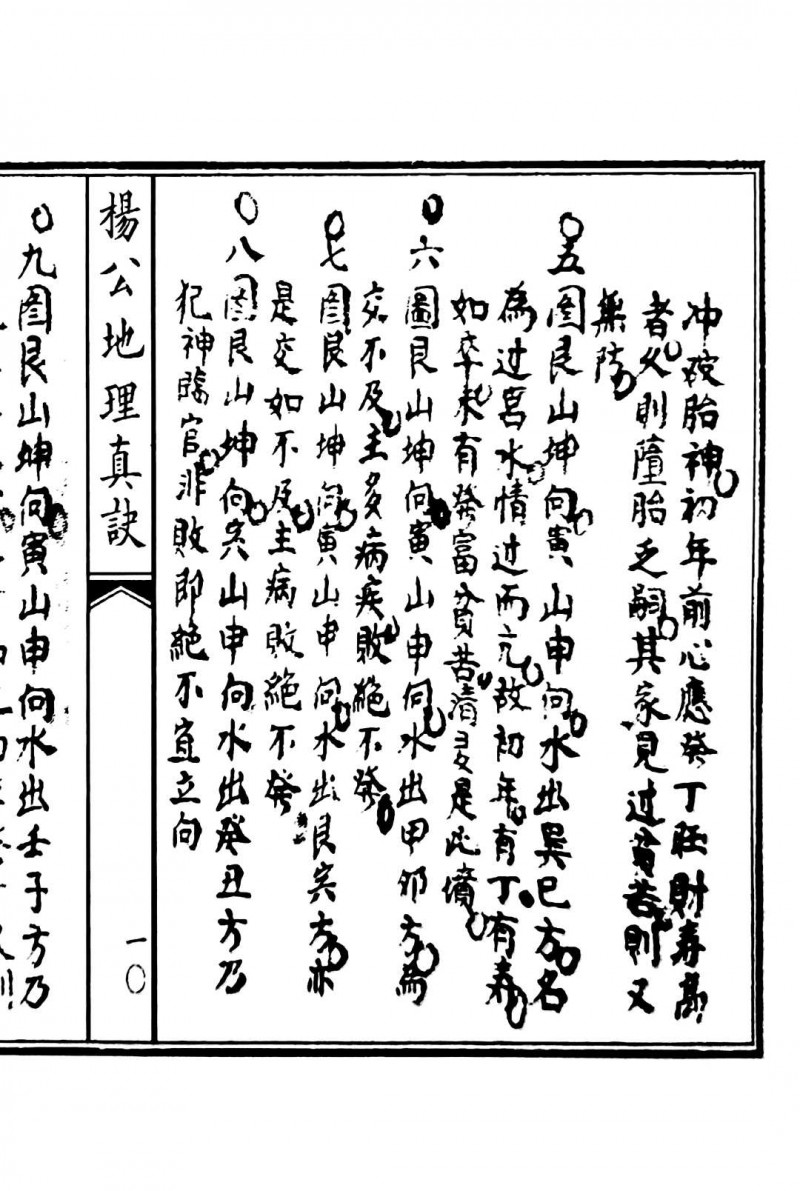 冲破胎神初年前心應發丁旺財春萬
者久則墮胎乏嗣其家見过貧苦則又
無防
○五圖艮山坤向寅山申向水出巽巳方名
為过宮水情过而亢故初年有丁有壽
如卒未有發富貧苦清多是此墳
○六圖艮山坤向寅山申向水出甲卯方為
交不及主多病疾敗絕不發
○七圖艮山坤向寅山申向水出艮寅方亦
是交如不及主病敗絕不發
○八圖艮山坤向寅山申向水出癸丑方乃
犯神臨官非敗即絕不宜立向
楊公地理真訣
一〇
○九圖艮山坤向寅山申向水出壬子方乃